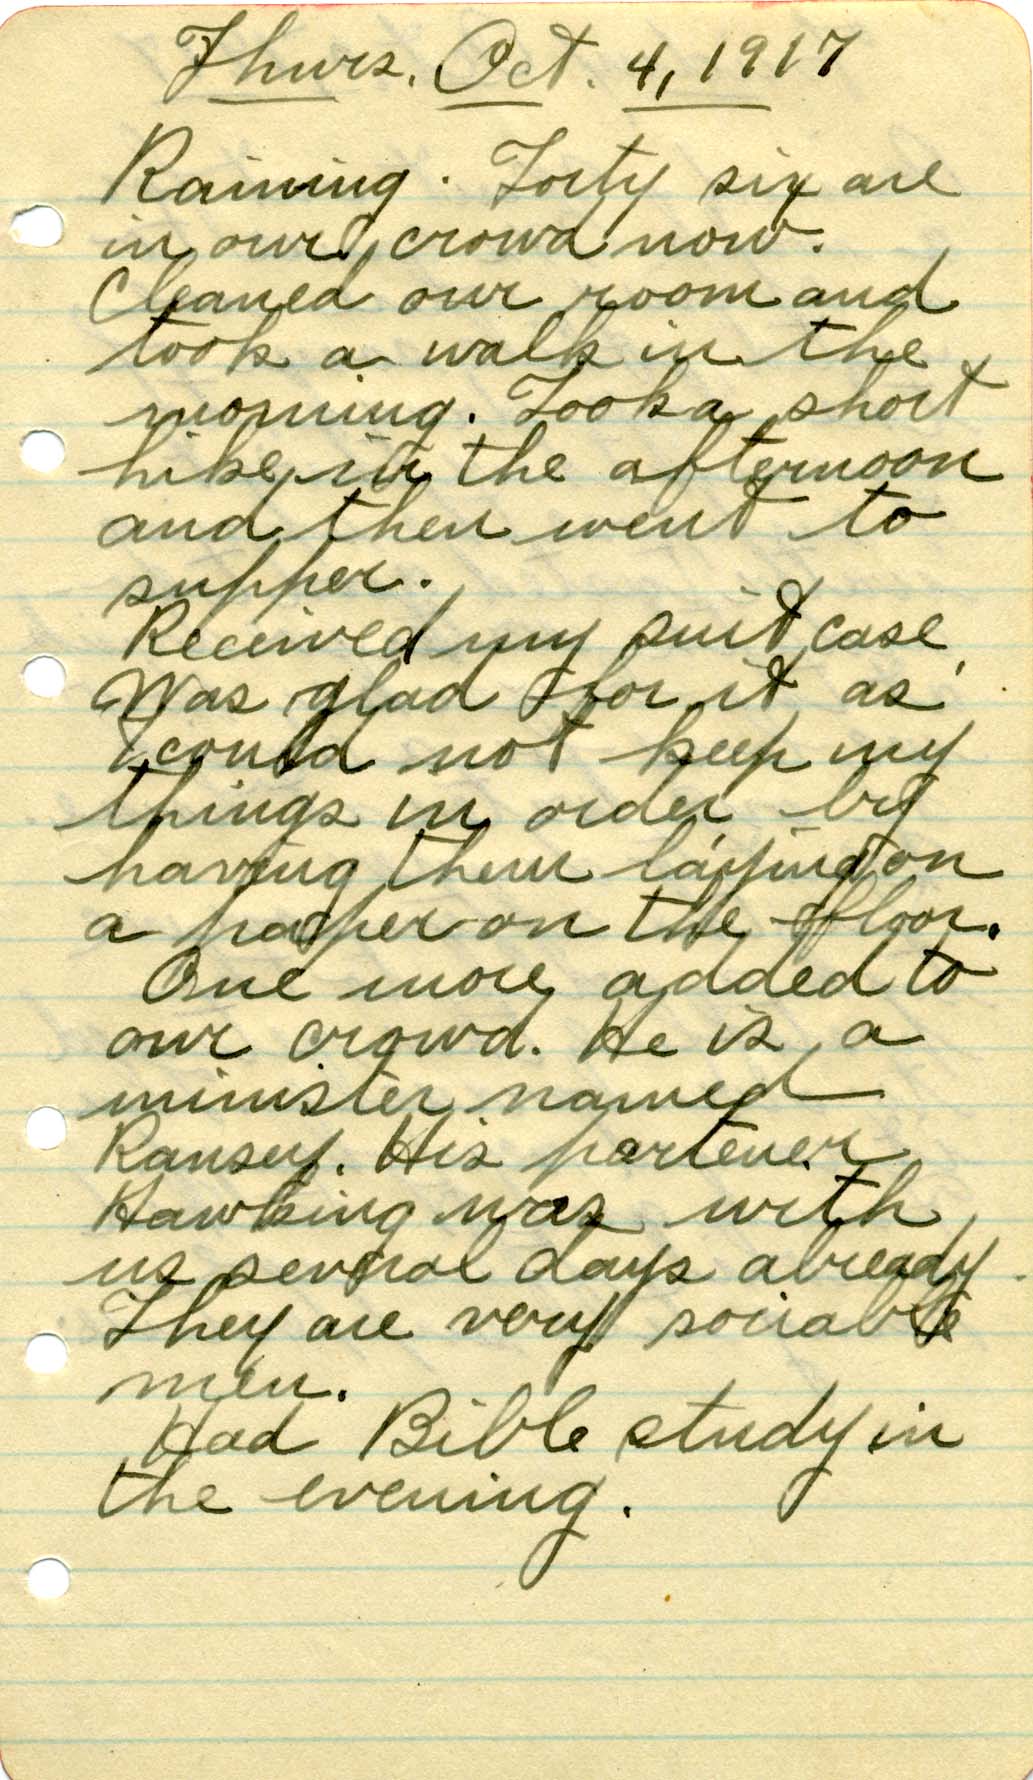 Thurs. Oct. 4, 1917
Raining. Forty six are
in our crowd now.
Cleaned our room and
took a walk in the
morning. Took a short
hike in the afternoon
and then went to
supper.
Received my suit case,
Was glad for it as
I could not keep my
things in order by
having them laying on
a paper on the floor.
One more added to
our crowd. He is a
minister named
Ransey. His partener
Hawking was with
us several days already
They are very sociable
men.
Had Bible study in
the evening.